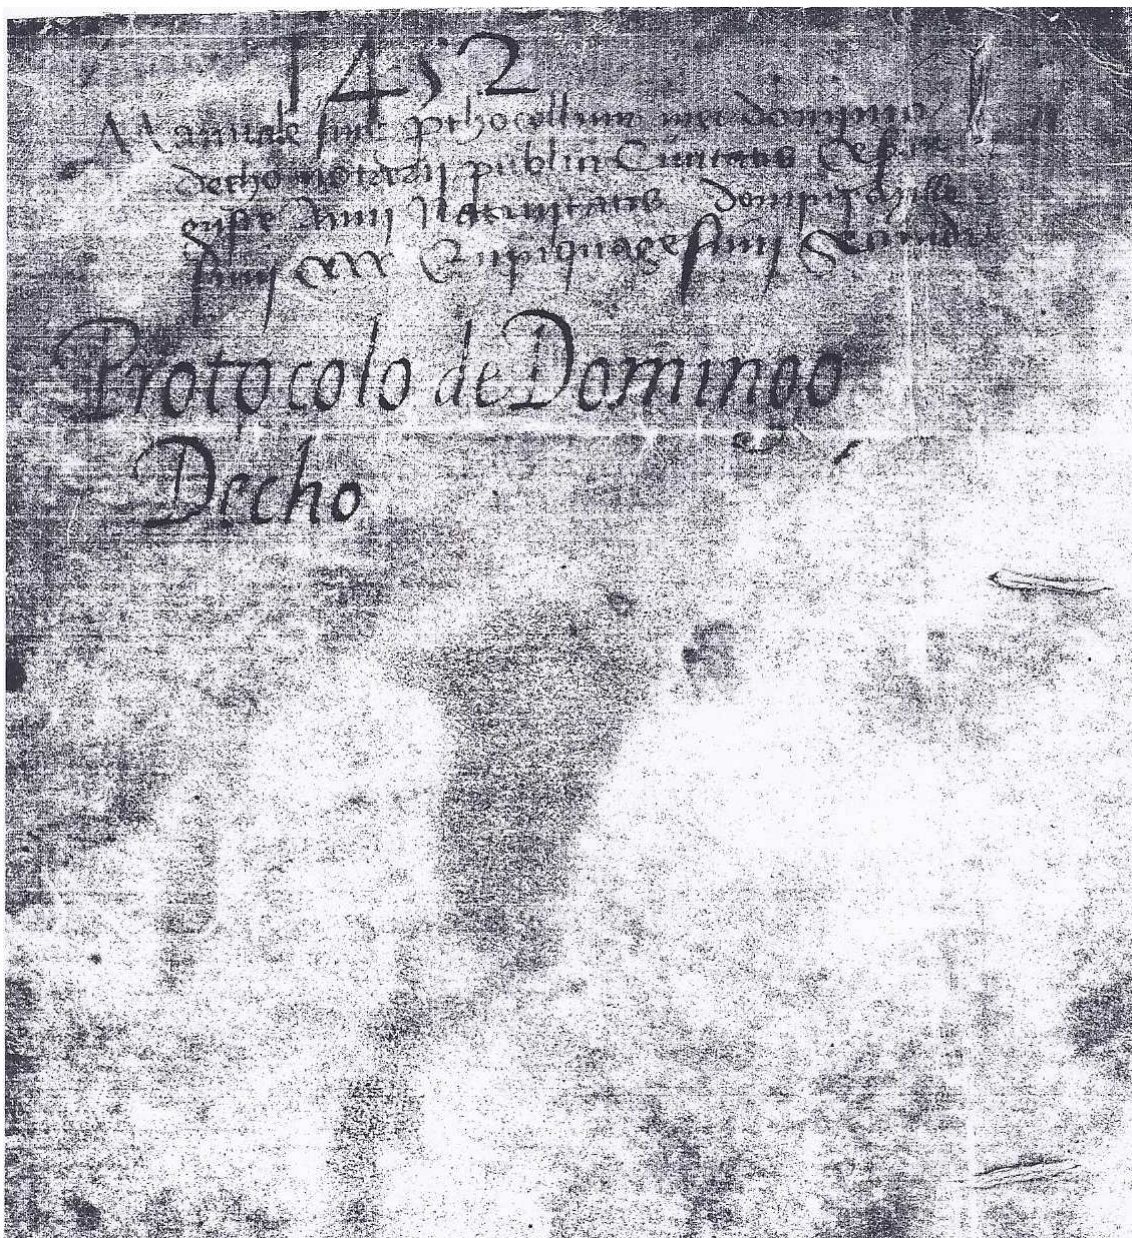 1452
Manuale sive prthocollum mei dominici
decho notarij publici Civitatis Cesar
guste Anni Nativitatis domini Mille
simi CCCC Quinquagesimi Secundi
Protocolo de Domingo
Decho